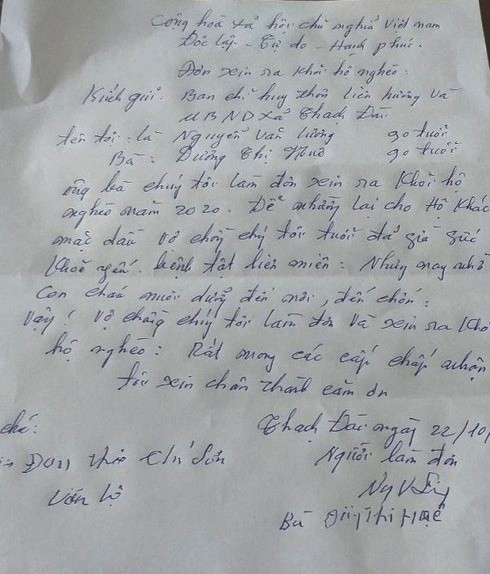 Cộng hoà xã hội chủ nghĩa Việt nam
Độc lập - Tự do - Hạnh phúc.
Đơn xin ra khỏi hộ nghèo:
Kính gửi: Ban chỉ huy thôn liên hương và
UBND xã Thạch Đài
tên tôi: là Nguyễn Văn Lương 90 tuổi
Bà: Dương Thị Huê 90 tuổi
ông bà chúng tôi làm đơn xin ra khỏi hộ
nghèo năm 2020. Để nhường lại cho Hộ khác
mặc dầu vợ chồng chúng tôi tuổi đã già sức
khoẻ yếu. bệnh tật liên miên: Nhưng may nhờ
Con cháu nuôi dưỡng đến nơi, đến chốn:
Vậy! Vợ chồng chúng tôi làm đơn và xin ra khỏ
hộ nghèo: Rất mong các cấp chấp nhận
tôi xin chân thành cảm ơn
Thạch Đài ngày 22/10/
chú:
Đơn
Người làm đơn
Bà